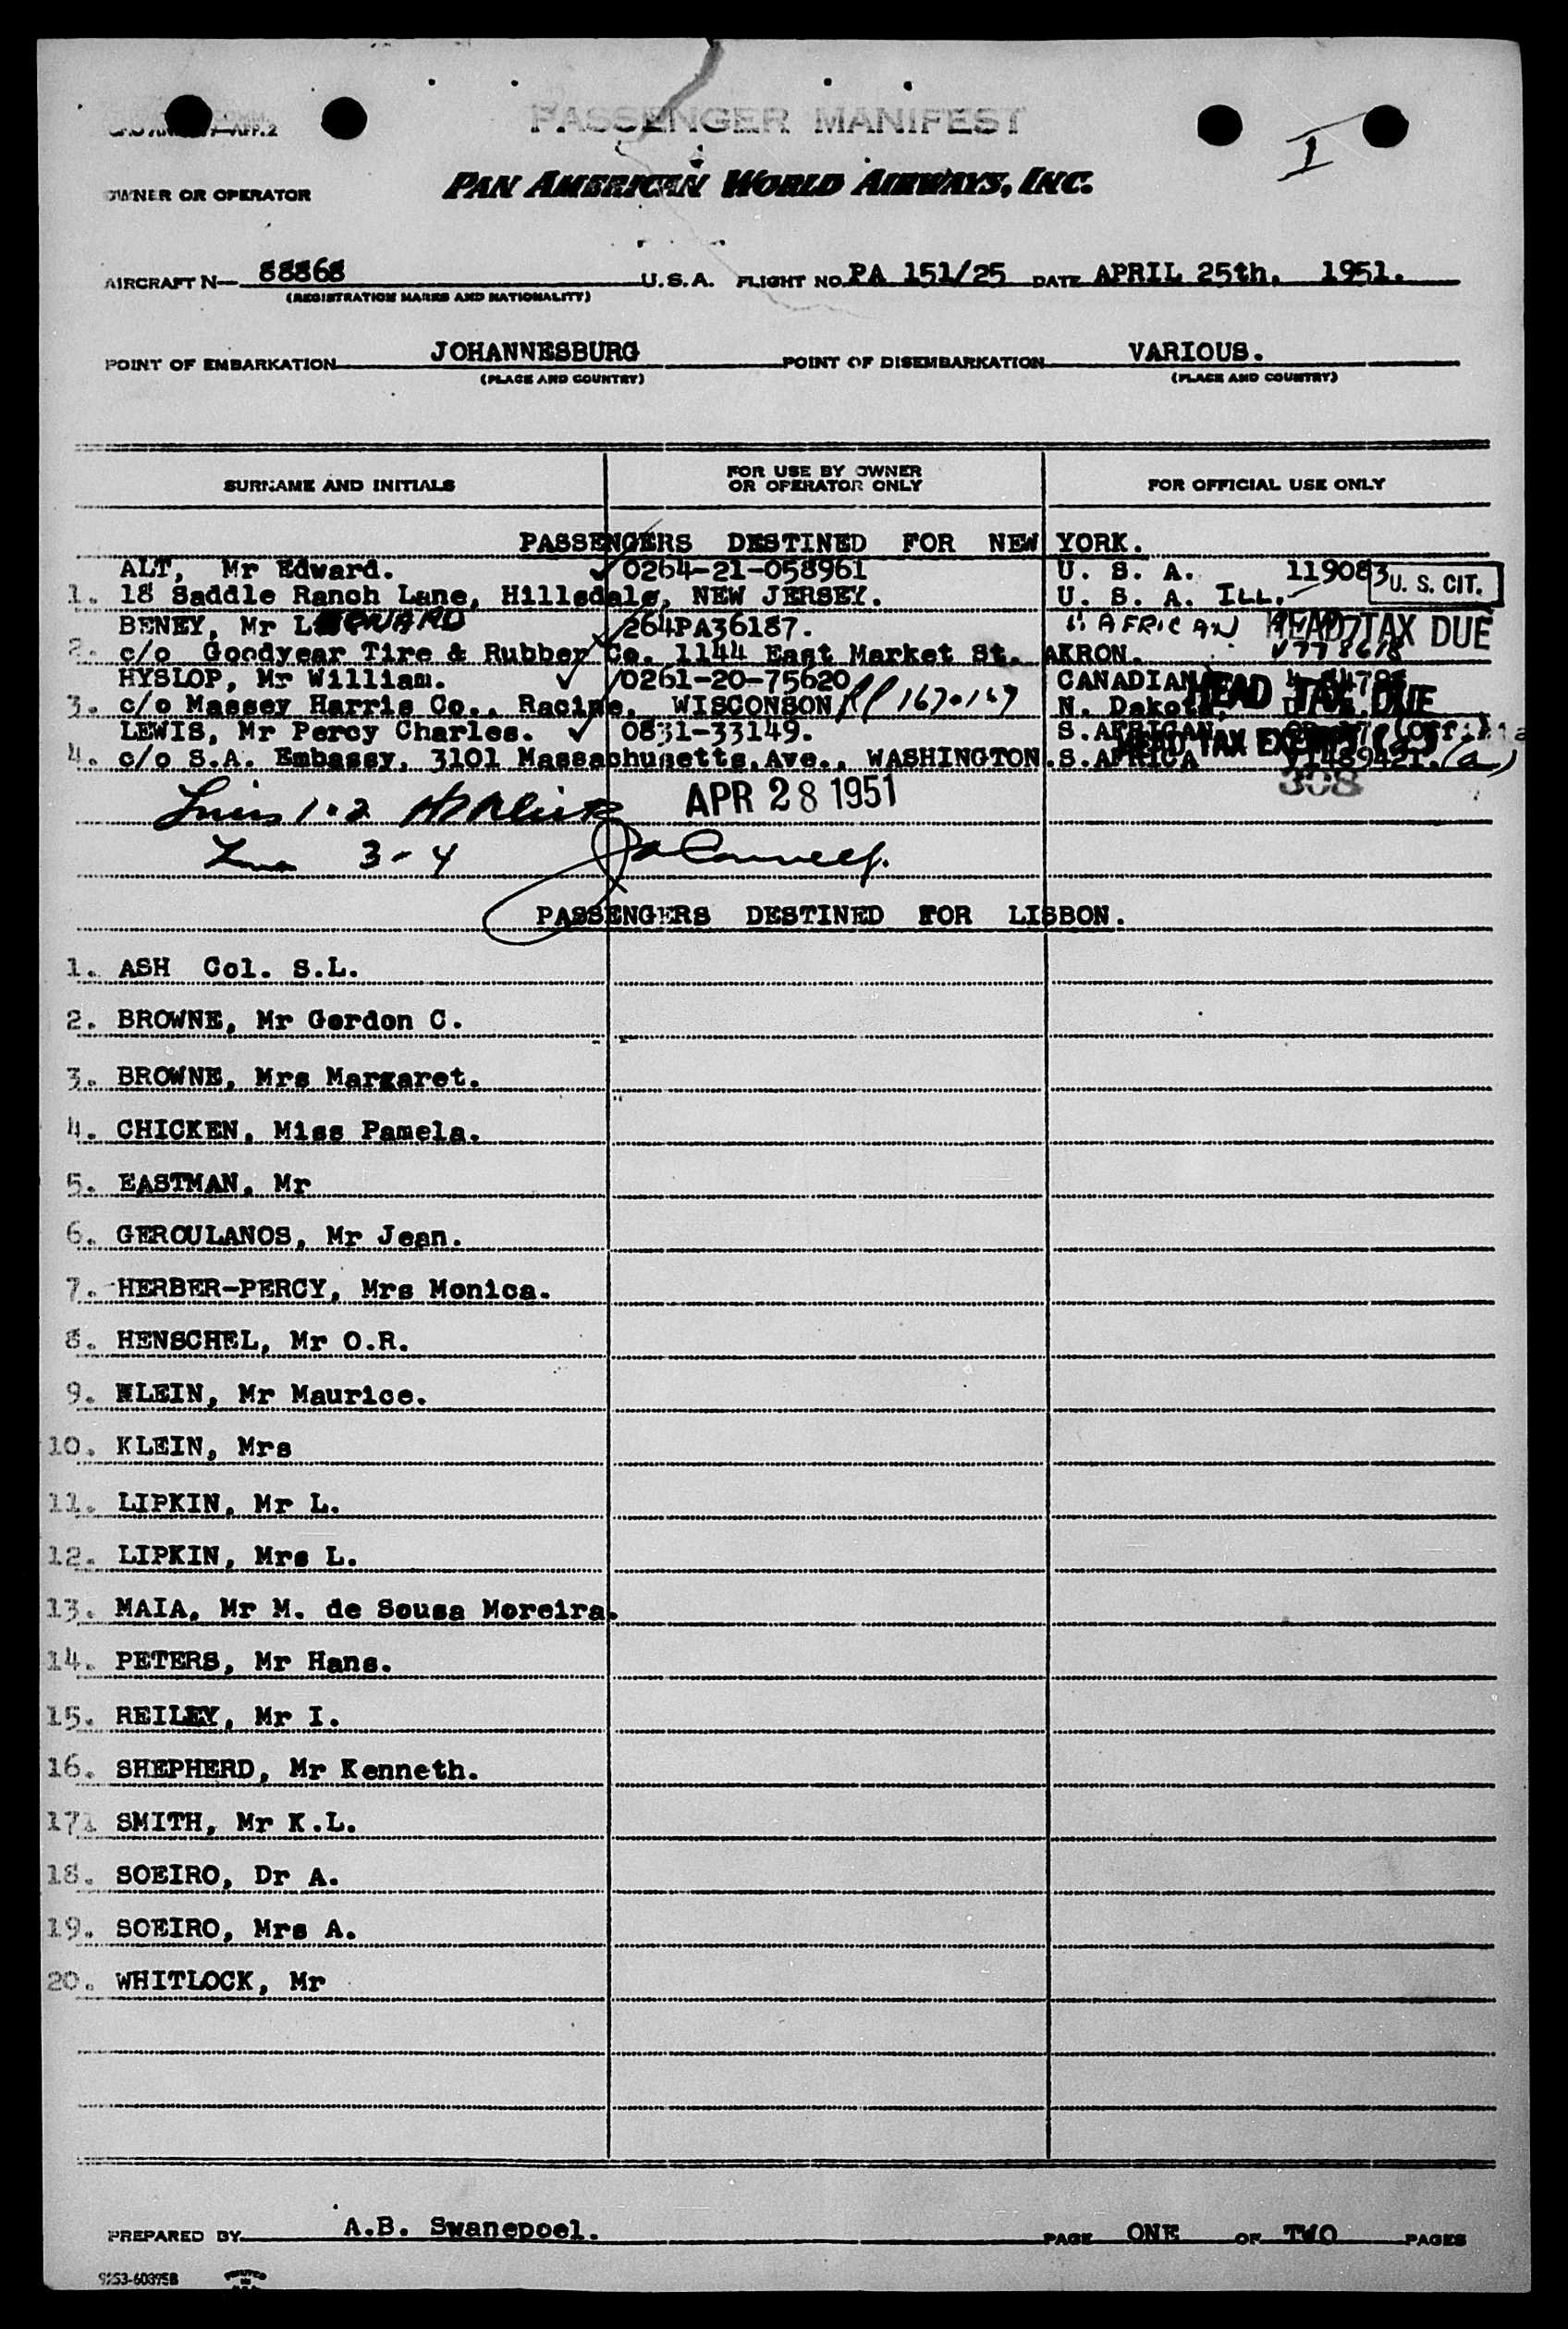 PASSENGER MANIFEST
I
OWNER OR OPERATOR PAN AMERICAN WORLD AIRWAYS, INC.
AIRCRAFT N— 88868 U.S.A. FLIGHT NO. PA 151/25 DATE APRIL 25th, 1951.
(REGISTRATION MARKS AND NATIONALITY)
POINT OF EMBARKATION JOHANNESBURG POINT OF DISEMBARKATION VARIOUS.
(PLACE AND COUNTRY) (PLACE AND COUNTRY)
SURNAME AND INITIALS FOR USE BY OWNER OR OPERATOR ONLY FOR OFFICIAL USE ONLY
PASSENGERS DESTINED FOR NEW YORK.
ALT, Mr Edward. 0264-21-058961 U. S. A. 119083 U. S. CIT.
1. 18 Saddle Ranch Lane, Hillsdale, NEW JERSEY. U. S. A. ILL.
BENEY, Mr LEONARD 264PA36187. AFRICAN HEAD TAX DUE
2. c/o Goodyear Tire & Rubber Co. 1144 East Market St. AKRON. V778618
HYSLOP, Mr William. 0261-20-75620 CANADIAN HEAD TAX DUE
3. c/o Massey Harris Co., Racine, WISCONSON N. Dakota,
LEWIS, Mr Percy Charles. 0831-33149. S.AFRICAN HEAD TAX
4. c/o S.A. Embassy, 3101 Massachusetts, Ave., WASHINGTON. S.AFRICA V1489421. (a)
308
1-2 APR 28 1951
3-4
PASSENGERS DESTINED FOR LISBON.
1. ASH Col. S.L.
2. BROWNE, Mr Gordon C.
3. BROWNE, Mrs Margaret.
4. CHICKEN, Miss Pamela.
5. EASTMAN, Mr
6. GEROULANOS, Mr Jean.
7. HERBER-PERCY, Mrs Monica.
8. HENSCHEL, Mr O.R.
9. KLEIN, Mr Maurice.
10. KLEIN, Mrs
11. LIPKIN, Mr L.
12. LIPKIN, Mrs L.
13. MAIA, Mr M. de Sousa Moreira.
14. PETERS, Mr Hans.
15. REILEY, Mr I.
16. SHEPHERD, Mr Kenneth.
17. SMITH, Mr K.L.
18. SOEIRO, Dr A.
19. SOEIRO, Mrs A.
20. WHITLOCK, Mr
PREPARED BY A.B. Swanepoel. PAGE ONE OF TWO PAGES
9253-60375B